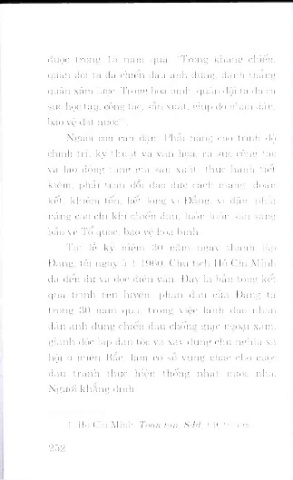 được trong 15 năm qua: "Trong kháng chiến,
quân đội ta đã chiến đấu anh dũng, đánh thắng
quân xâm lược. Trong hòa bình, quân đội ta đã ra
sức học tập, công tác, sản xuất, giúp đỡ nhân dân,
bảo vệ đất nước".
Người còn căn dặn: Phải nâng cao trình độ
chính trị, kỹ thuật và văn hóa, ra sức công tác
và lao động tăng gia sản xuất, thực hành tiết
kiệm, phải trau dồi đạo đức cách mạng, đoàn
kết, khiêm tốn, hết lòng vì Đảng, vì dân, phải
nâng cao chí khí chiến đấu, luôn luôn sẵn sàng
bảo vệ Tổ quốc, bảo vệ hòa bình.
Tại lễ kỷ niệm 30 năm ngày thành lập
Đảng, tối ngày 5-1-1960, Chủ tịch Hồ Chí Minh
đã đến dự và đọc diễn văn. Đây là bản tổng kết
quá trình rèn luyện, phấn đấu của Đảng ta
trong 30 năm qua, trong việc lãnh đạo nhân
dân anh dũng chiến đấu chống giặc ngoại xâm,
giành độc lập dân tộc và xây dựng chủ nghĩa xã
hội ở miền Bắc, làm cơ sở vững chắc cho cuộc
đấu tranh thực hiện thống nhất nước nhà.
Người khẳng định:
1. Hồ Chí Minh: Toàn tập, Sđd, t.9,
252